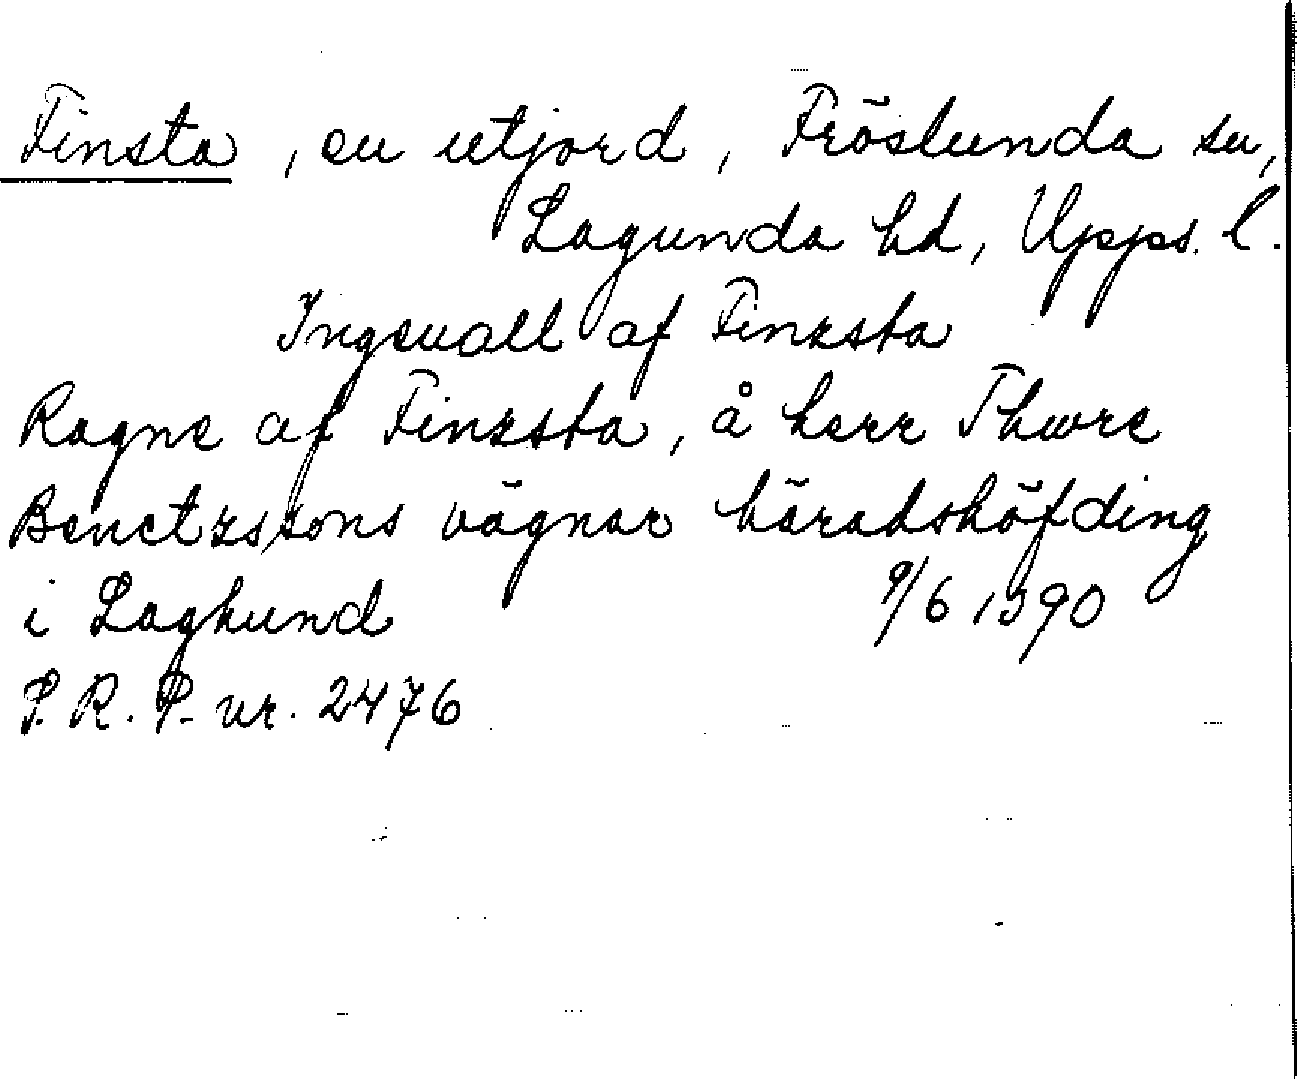 Finsta, en utjord, Fröslunda sn,
Lagunda hd, Upps. l.
Ingevall af Finzsta
Ragne af Finzsta, å herr Thure
Benctzssons vägnar häradshöfding
i Laghund 9/6 1390
S. R. P. nr. 2476